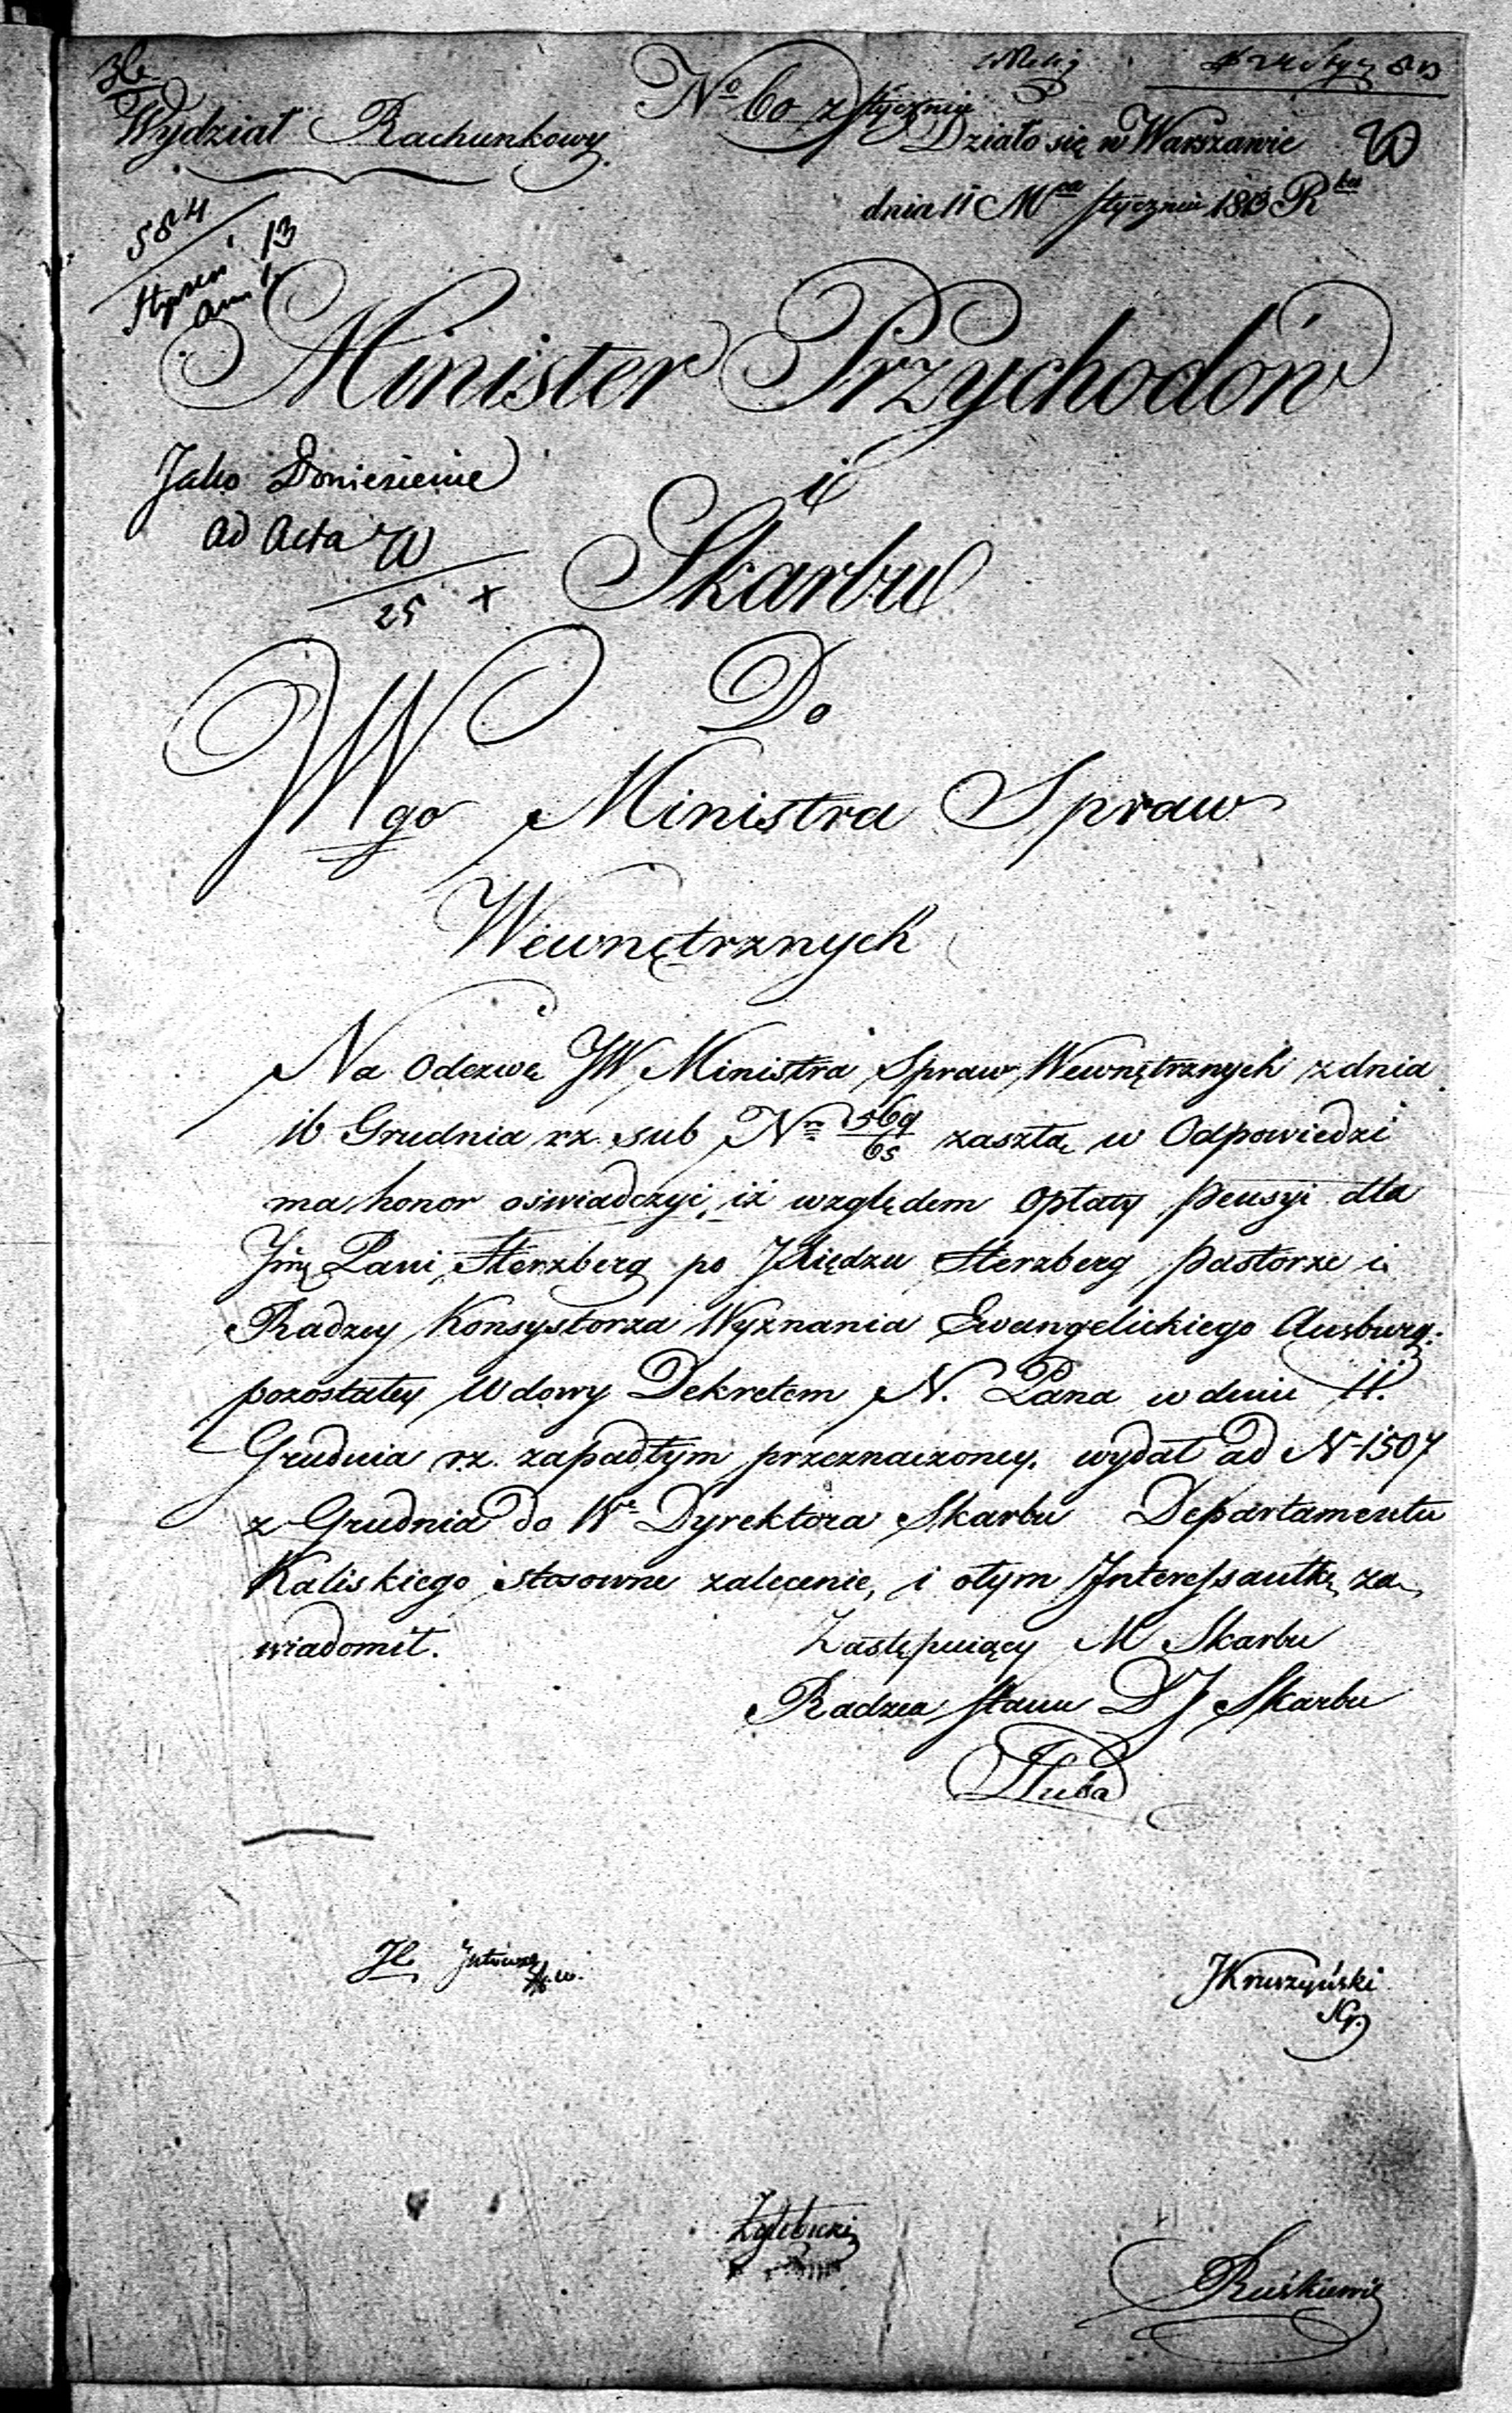 Wydział Rachunkowy.
No 60 z Stycznia
Działo się w Warszawie
dnia 11 Mca Stycznia 1813 Rku
584
13
Minister Przychodów
Jako Doniesienie
ad Acta W
25 +
i
Skarbu
Do
JWgo Ministra Spraw
Wewnętrznych
Na Odezwę JW Ministra Spraw Wewnętrznych z dnia
16 Grudnia rz. sub Nro 569/65 zaszłą w Odpowiedzi
ma honor oświadczyć, iż względem opłaty Pensyi dla
Jmę Pani Sterzberg po JXiędzu Sterzberg Pastorze i
Radzcy Konsystorza Wyznania Ewangelickiego Ausburg:
pozostałey Wdowy Dekretem N. Pana w dniu 11.
Grudnia rz. zapadłym przeznaczoney, wydał ad N 1507
z Grudnia do We Dyrektora Skarbu Departamentu
Kaliskiego stosowne zalecenie, i otym Interessantkę za-
wiadomił.
Zastępuiący M Skarbu
Radzca Stanu D J Skarbu
Kruszyński